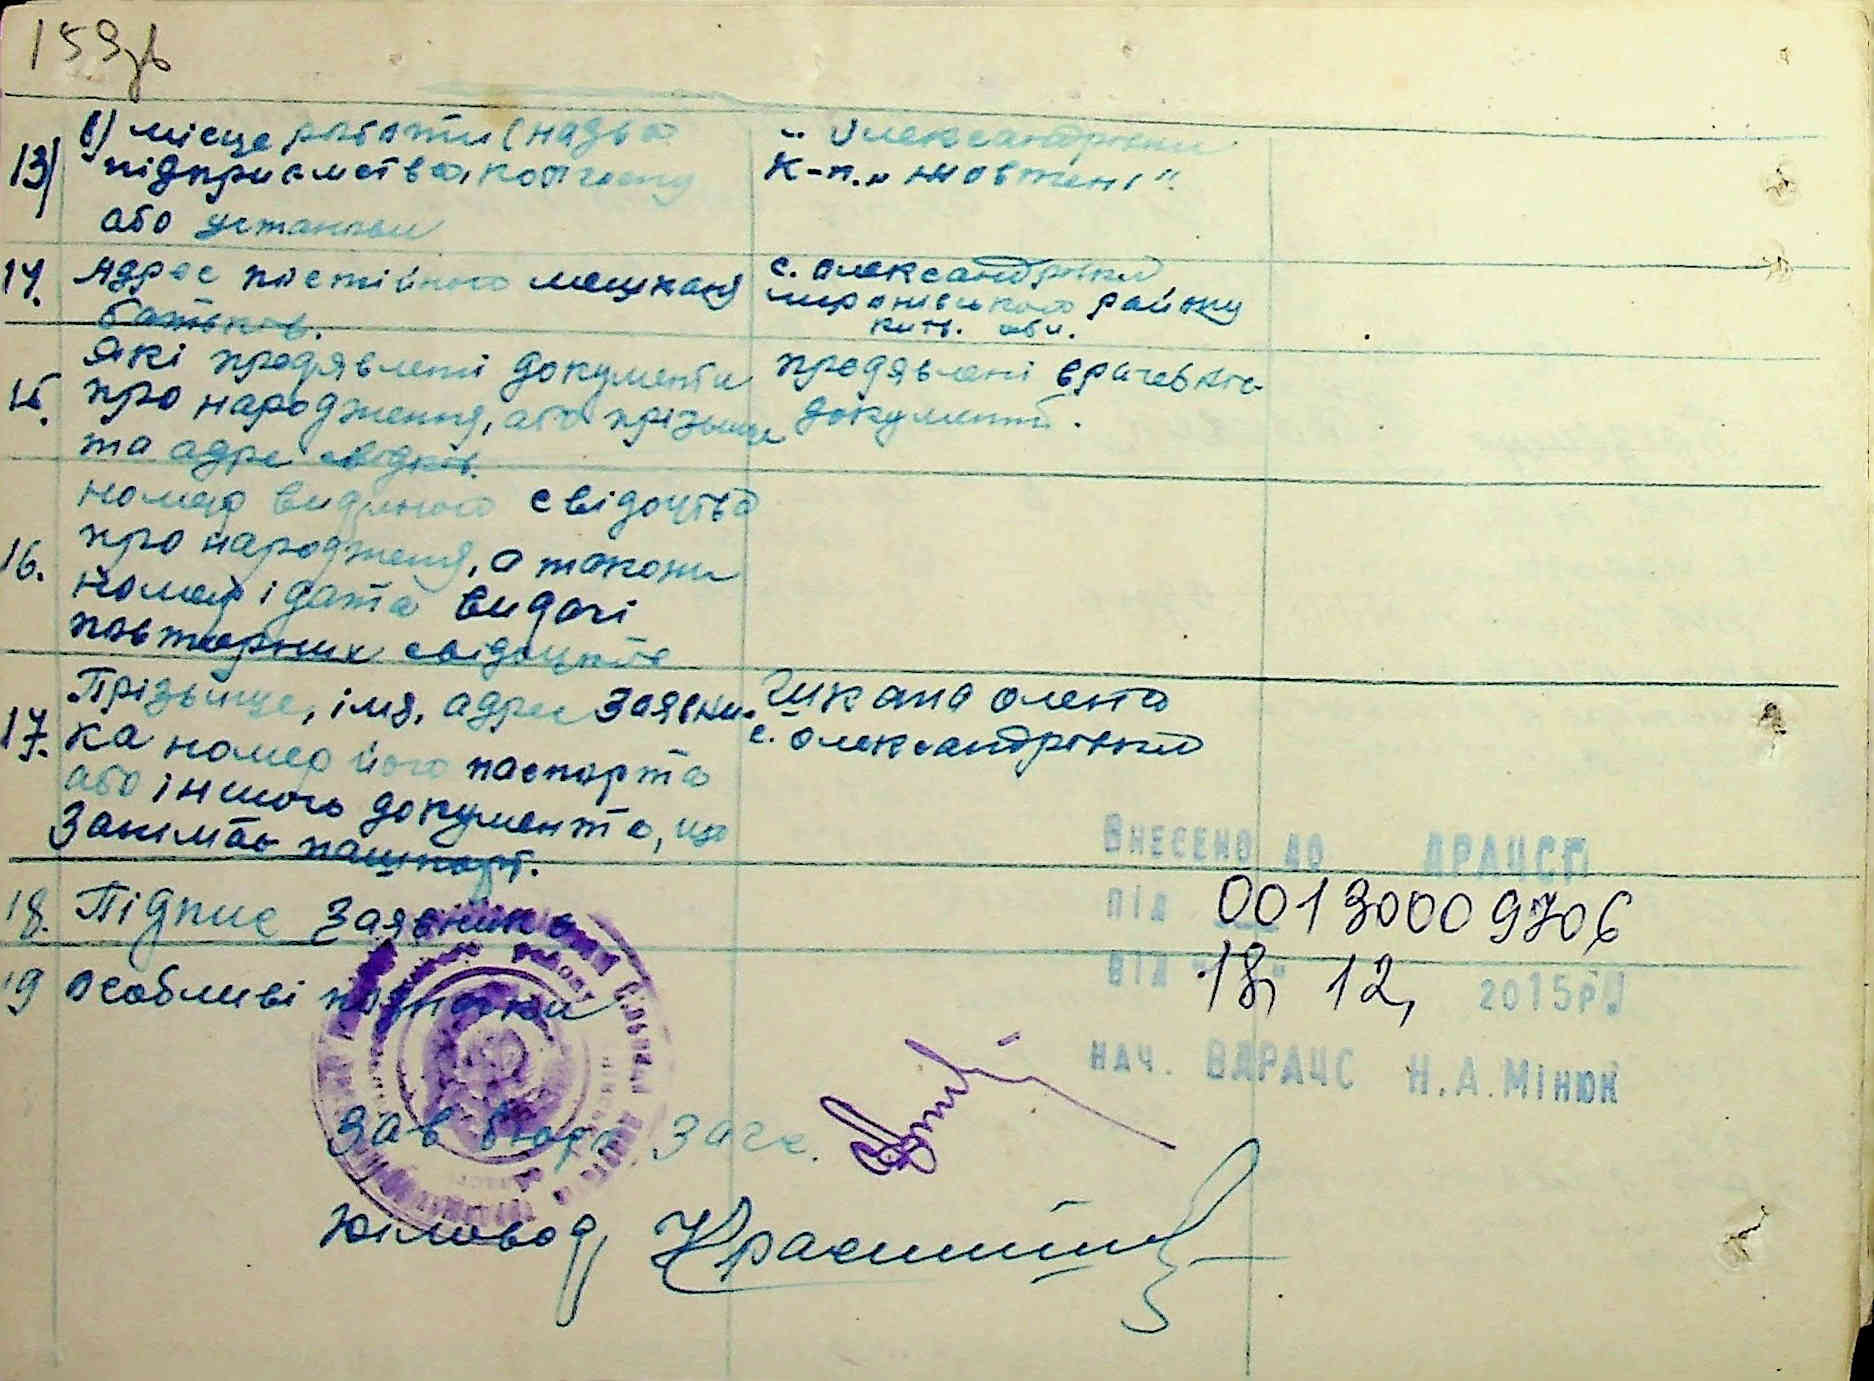 159зв
13) в) місце роботи (назва
підприємства, колгоспу
або установи
с. Олександрівки
к-п. „Жовтень"
14. Адрес постійного мешканя
батьків.
с. Олександрівки
миронівського району
київ. обл.
15. Які предявлені документи
про народження, або прізвище
та адрес свідків.
предявлені врачебні
документи.
16. номер виданого свідоцтва
про народженя, а також
номер і дата видачі
повторних свідоцтв
17. Прізвище, імя, адрес заявни-
ка номер його паспорта
або іншого документа, що
заміняє пашпорт.
Олена
с. Олександрівки
18. Підпис заявника
19 Особливі помітки
Внесено до ДРАЦСГ
під 00130009706
від "18" 12, 2015р.
нач. ВДРАЦС Н.А.Мінюк
Зав бюро Загс.
Діловод